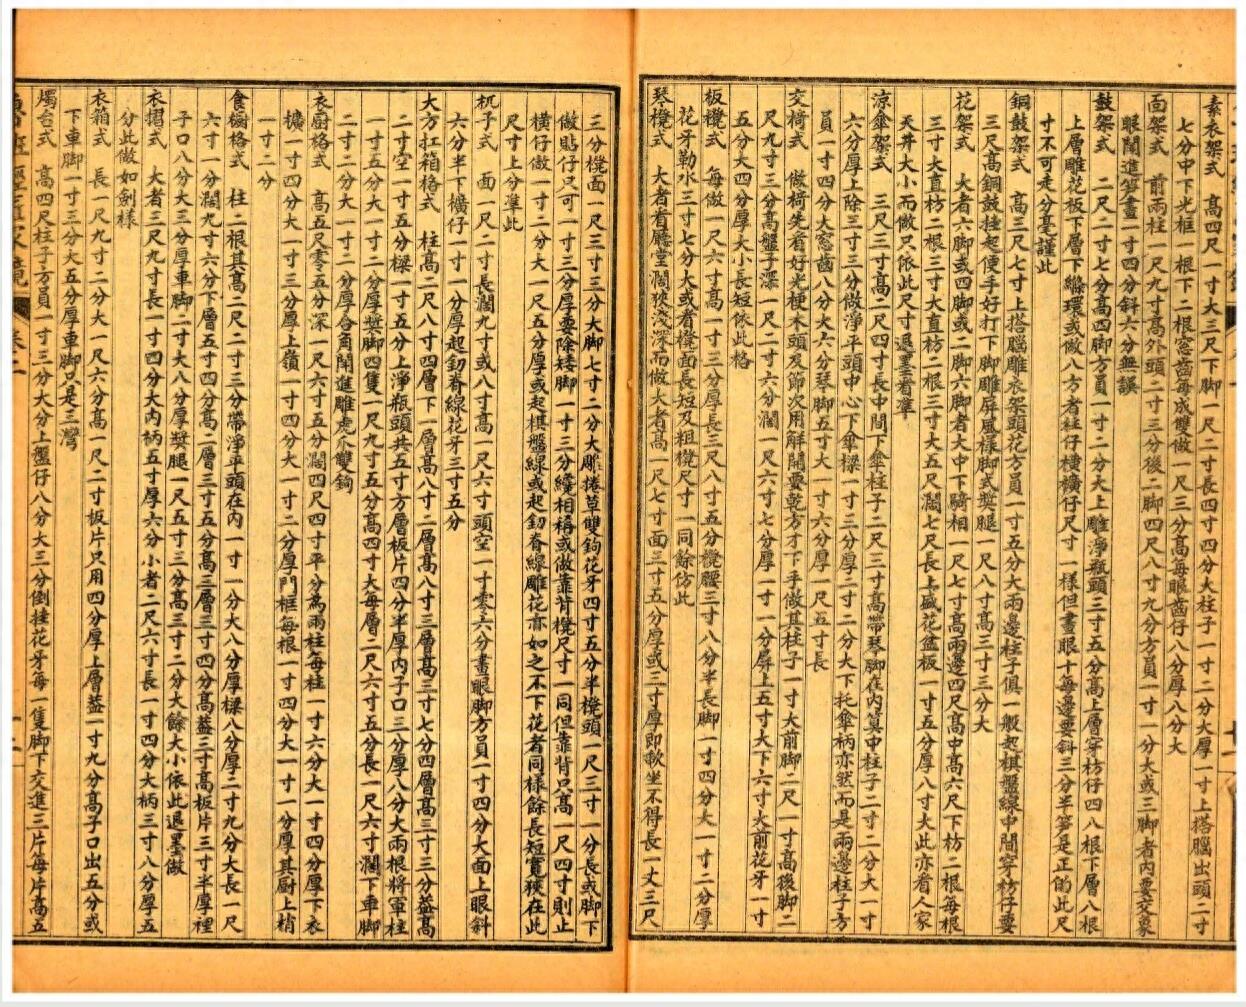 素衣架式 高四尺一寸大三尺下脚一尺二寸長四寸四分大柱子一寸二分大厚一寸上搭腦出頭二寸
七分中下光框一根下二根窓齒每成雙做一尺三分高每眼齒仔八分厚八分大
面架式 前兩柱一尺九寸高外頭二寸三分後二脚四尺八寸九分方員一寸一分大或三脚者內要交象
眼闊進笋畫一寸四分斜六分無誤
鼓架式 二尺二寸七分高四脚方員一寸二分大上雕淨瓶頭三寸五分高上層穿枋仔四八根下層八根
上層雕花板下層下絛環或做八方者柱仔橫擴仔尺寸一樣但畫眼十每邊要斜三分半笋是正的此尺
寸不可走分毫謹此
銅鼓架式 高三尺七寸上搭腦雕衣架頭花方員一寸五分大兩邊柱子俱一般起棋盤線中間穿枋仔要
三尺高銅鼓挂起便手好打下脚雕屏風樣脚式獎腿一尺八寸高三寸三分大
花架式 大者六脚或四脚或二脚六脚者大中下騎相一尺七寸高兩邊四尺高中高六尺下枋二根每根
三寸大直枋二根三寸大直枋二根三寸大五尺闊七尺長上盛花盆板一寸五分厚八寸大此亦看人家
天井大小而做只依此尺寸退墨看準
涼傘架式 三尺三寸高二尺四寸長中間下傘柱子二尺三寸高帶琴脚在內算中柱子二寸二分大一寸
六分厚上除三寸三分做淨平頭中心下傘樑一寸三分厚二寸二分大下托傘柄亦然而是兩邊柱子方
員一寸四分大窓齒八分大六分琴脚五寸大一寸六分厚一尺五寸長
交椅式 做椅先看好光梗木頭及節次用解開要乾方才下手做其柱子一寸大前脚二尺一寸高後脚二
尺九寸三分高盤子深一尺二寸六分濶一尺六寸七分厚一寸一分屏上五寸大下六寸大前花牙一寸
五分大四分厚大小長短依此格
板櫈式 每做一尺六寸高一寸三分厚長三尺八寸五分櫈腰三寸八分半長脚一寸四分大一寸二分厚
花牙勒水三寸七分大或看櫈面長短及粗櫈尺寸一同餘仿此
琴櫈式 大者看廳堂濶狹淺深而做大者高一尺七寸面三寸五分厚或三寸厚即軟坐不得長一丈三尺
三分櫈面一尺三寸三分大脚七寸二分大雕捲草雙鉤花牙四寸五分半櫈頭一尺三寸一分長或脚下
做貼仔只可一寸三分厚要除矮脚一寸三分纔相稱或做靠背櫈尺寸一同但靠背只高一尺四寸則止
橫仔做一寸二分大一尺五分厚或起棋盤線或起釰脊線雕花亦如之不下花者同樣餘長短寛狹在此
尺寸上分準此
杌子式 面一尺二寸長濶九寸或八寸高一尺六寸頭空一寸零六分畫眼脚方員一寸四分大面上眼斜
六分半下擴仔一寸一分厚起釰脊線花牙三寸五分
大方扛箱格式 柱高二尺八寸四層下一層高八寸二層高八寸三層高三寸七分四層高三寸三分葢高
二寸空一寸五分樑一寸五分上淨瓶頭共五寸方層板片四分半厚內子口三分厚八分大兩根將軍柱
一寸五分大一寸二分厚獎脚四隻一尺九寸五分高四寸大每層二尺六寸五分長一尺六寸濶下車脚
二寸二分大一寸二分厚合角鬧進雕虎爪雙鉤
衣廚格式 高五尺零五分深一尺六寸五分濶四尺四寸平分為兩柱每柱一寸六分大一寸四分厚下衣
擴一寸四分大一寸三分厚上嶺一寸四分大一寸二分厚門框每根一寸四分大一寸一分厚其厨上梢
一寸二分
食櫥格式 柱二根其高二尺二寸三分帶淨平頭在內一寸一分大八分厚樑八分厚二寸九分大長一尺
六寸一分濶九寸六分下層五寸四分高二層三寸五分高三層三寸四分高葢三寸高板片三寸半厚裡
子口八分大三分厚車脚二寸大八分厚獎腿一尺五寸三分高三寸二分大餘大小依此退墨做
衣摺式 大者三尺九寸長一寸四分大內柄五寸厚六分小者二尺六寸長一寸四分大柄三寸八分厚五
分此做如劍樣
衣箱式 長一尺九寸二分大一尺六分高一尺二寸板片只用四分厚上層葢一寸九分高子口出五分或
下車脚一寸三分大五分厚車脚只是三灣
燭台式 高四尺柱子方員一寸三分大分上盤仔八分大三分倒挂花牙每一隻脚下交進三片每片高五